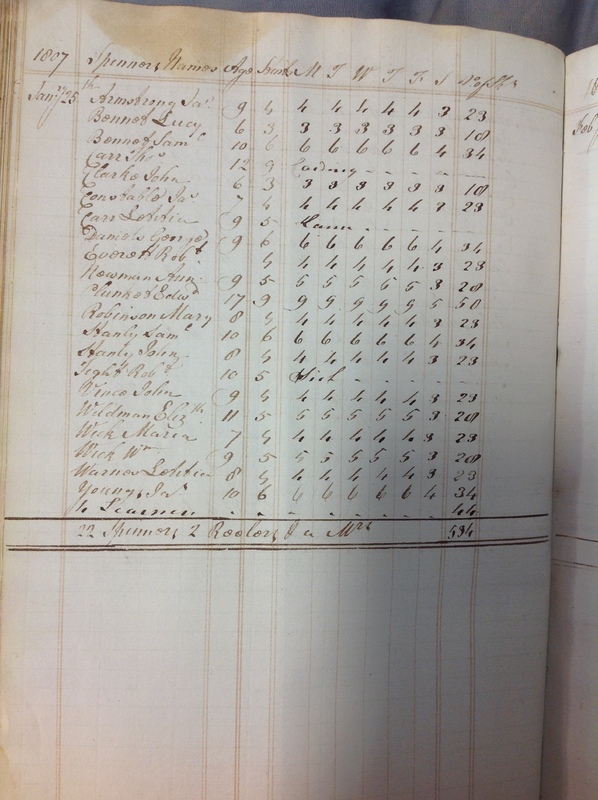 1807 Spinners Names Age Stint M T W T F S No of Sk.s
Jan.ry 25th Armstrong Ja.s 9 4 4 4 4 4 4 3 23
Bennet Lucy 6 3 3 3 3 3 3 3 18
Bennet Sam.l 10 6 6 6 6 6 6 4 34
Carr Tho.s 12 9 Carding - - - -
Clarke John 6 3 3 3 3 3 3 3 18
Constable Ja.s 7 4 4 4 4 4 4 3 23
Carr Letitia 9 5 - - - -
Daniels George 9 6 6 6 6 6 6 4 34
Everett Rob.t 4 4 4 4 4 4 3 23
Newman Ann 9 5 5 5 5 5 5 3 28
Plunket Edw.d 17 9 9 9 9 9 9 5 50
Robinson Mary 8 4 4 4 4 4 4 3 23
Stanly Sam.l 10 6 6 6 6 6 6 4 34
Stanly John 8 4 4 4 4 4 4 3 23
Tight Rob.t 10 5 Sick - - - - -
Vince John 9 4 4 4 4 4 4 3 23
Wildman Eliz.th 11 5 5 5 5 5 5 3 28
Wick Maria 7 4 4 4 4 4 4 3 23
Wick W.m 9 5 5 5 5 5 5 3 28
Warnes Letitia 8 4 4 4 4 4 4 3 23
Young Ja.s 10 6 6 6 6 6 6 4 34
4 Learners - - - - - - - - 44
22 Spinners 2 Reelers & a Mrs 534
18
Feb